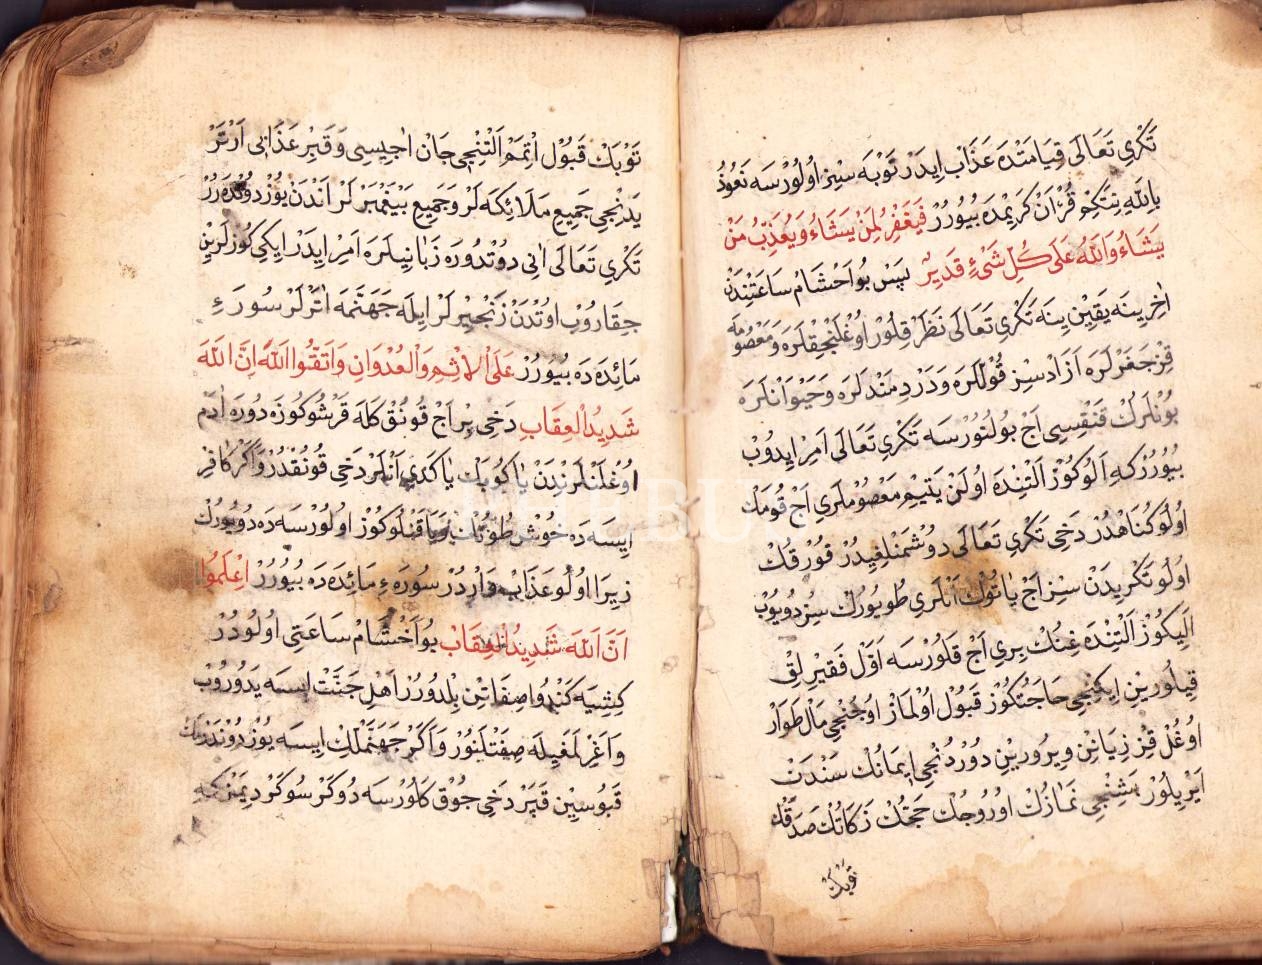 تَكْرِي تَعَالَى قِيَامَتْدَه عَذَاب اِيدَرْ تَوْبَه سِيز اُولُورْسَه نَعُوذُ
بِاللهِ نِتَكِمْ قُرْاٰنْ كَرِيمْدَه بُيُورُرْ فَيَغْفِرُ لِمَنْ يَشَاءُ وَيُعَذِّبُ مَنْ
يَشَاءُ وَاللهُ عَلَى كُلِّ شَیْءٍ قَدِيرٌ پَسْ بُو اَخْشَامْ سَاعَتِنْدَنْ
اٰخِرِينَه يَقِينْ يِنَه تَكْرِي تَعَالَى نَظَرْ قِلُورْ اُوغْلَنْجِقْلَرَه وَمَعْصُومَه
قِزْجَغَزْلَرَه اَزَادْسِيز قُولْلَرَه وَدَرْدِمَنْدَلَرَه وَحَيْوَانْلَرَه
بُونْلَرِكْ قَنْقِيسِى اَجْ بُولُنُورْسَه تَكْرِي تَعَالَى اَمِرْ اِيدُوبْ
بُيُورُرْكه اَلُوكُوزْ اَلْتِنْدَه اُولَنْ يَتِيمْ مَعْصُومْلَرِي اَجْ قُومَكْ
اُولُو كُنَاهْدُرْ دَخِى تَكْرِي تَعَالَى دُوشْمَنْلِغِيدُرْ قُورْقُكْ
اُولُو تَكْرِيدَنْ سِيز اَجْ يَاتُوكْ اَنْلَرِي طُويُورُكْ سِز دُويُوبْ
اَلِيكُوزْ اَلْتِنْدَه غِنُكْ بِرِي اَجْ قَلُورْسَه اَوَّلْ فَقِيرْلِقْ
قِيلُورِينْ اِيكِنْجِى حَاجَتُكُوزْ قَبُولْ اُولْمَازْ اُوچُنْجِى مَالْ طَوَارْ
اُوغُلْ قِزْ زِيَانِنْ وِيرُورِينْ دُورْدُنْجِى اِيمَانُكْ سَنْدَنْ
اَيْرِيلُورْ بَشِنْجِى نَمَازُكْ اُورُوجُكْ حَجُّكْ زَكَاتُكْ صَدَقَكْ
تَوْبَكْ
تَوْبَكْ قَبُولْ اِتْمَمْ اَلْتِنْجِى جَانْ اٰجِيسِى وَقَبِرْ عَذَابِى اَرْتَرْ
يَدِنْجِى جَمِيعِ مَلَائِكَه لَرْ وَجَمِيعِ پَيْغَمْبَرْلَرْ اَنْدَنْ يُوزْ دُونْدَرُرْ
تَكْرِي تَعَالَى اٰنِى دُوتْدُورَه زَبَانِيلَرَه اَمِرْ اِيدَرْ اِيكِى كُوزْلَرِينْ
جِقَارُوبْ اُوتْدَنْ زَنْجِيرْلَرْ اِيلَه جَهَنَّمَه اٰتَرْلَرْ سُورَءِ
مَائِدَه دَه بُيُورُرْ عَلَى الْاِثْمِ وَالْعُدْوَانِ وَاتَّقُوا اللهَ اِنَّ اللهَ
شَدِيدُ الْعِقَابِ دَخِى بِرْ اَجْ قُونُقْ كَلَه قَرْشُوكُوزَه دُورَه اٰدَمْ
اُوغْلَنْلَرِنْدَنْ يَا كُوپَكْ يَا كَدِي اَنْلَرْ دَخِى قُونُقْدُرْ وَاَكَرْ كَافِرْ
اِيسَه دَه خُوشْ طُوتُكْ يَاقِنْلُوكُوزْ اُولُورْسَه دَه دُويُورُكْ
زِيرَا اُولُو عَذَابْ وَارْدُرْ سُورَهءِ مَائِدَه دَه بُيُورُرْ اِعْلَمُوا
اَنَّ اللهَ شَدِيدُ الْعِقَابْ بُو اَخْشَامْ سَاعَتِى اُولُودُرْ
كِشِيَه كَنْدُو صِفَاتِنْ بِلْدُورُرْ اَهْلِ جَنَّتْ اِيسَه يَدُورُوبْ
وَاَغِرْلَمَغِيلَه صِفَتْلَنُورْ وَاَكَرْ جَهَنَّمْلِكْ اِيسَه يُوزْ دُونْدَرْمَكْ
قَپُوسِينْ قَپَرْ دَخِى جُوقْ كَلُورْسَه دُوكَرْ سُوكَرْ دِيمَزْكِه